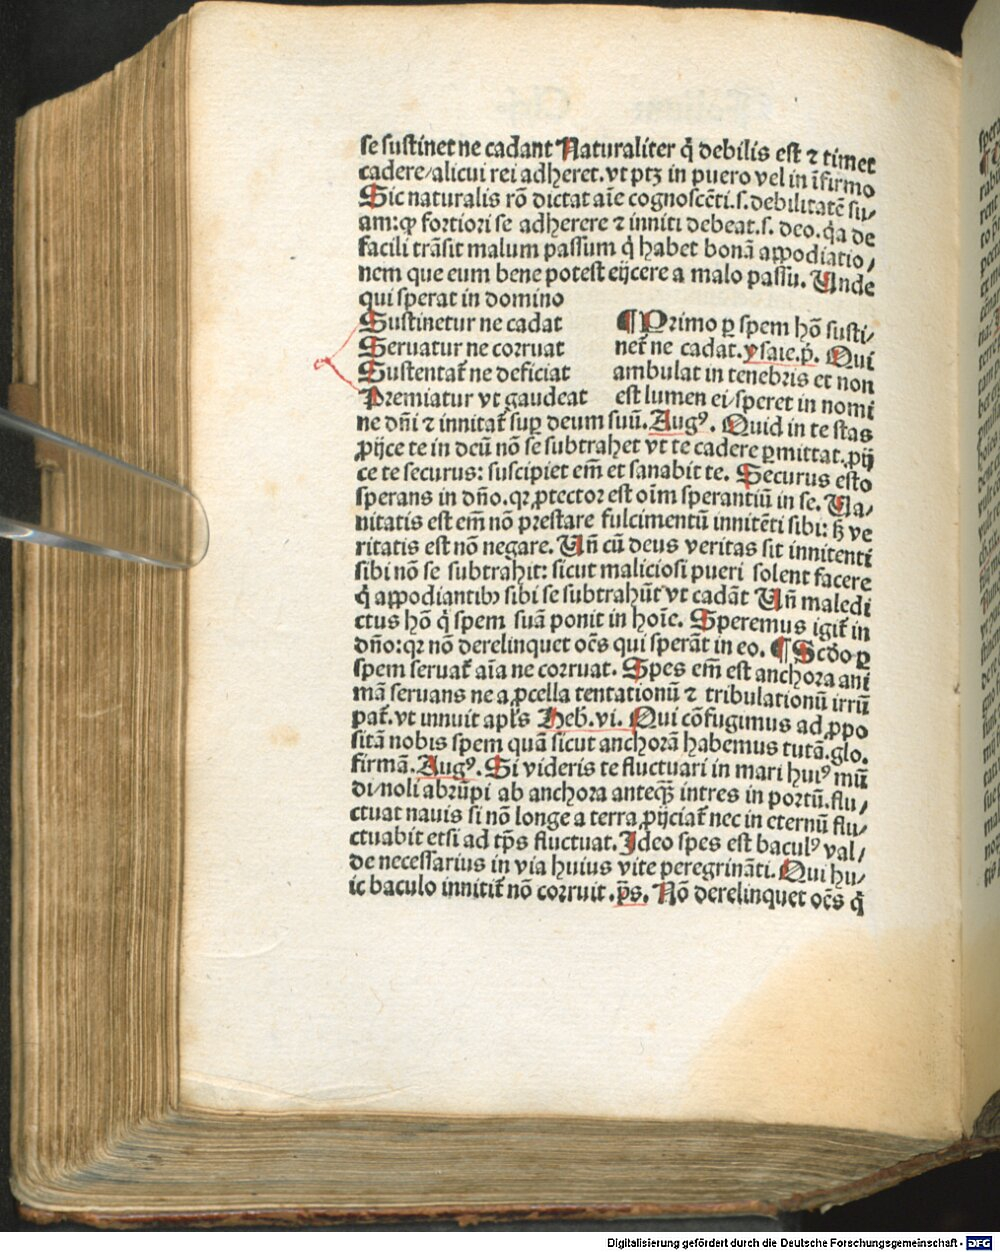 se sustinet ne cadant Naturaliter q̄ debilis est ⁊ timet
cadere/alicui rei adheret. vt ptꝫ in puero vel in īfirmo
Sic naturalis rō dictat aīe cognoscēti.s.debilitatē su/
am:ꝙ fortiori se adherere ⁊ inniti debeat.s. deo.q̄a de
facili trāsit malum passum q̄ habet bonā appodiatio/
nem que eum bene potest eijcere a malo passu. Unde
qui sperat in domino
Sustinetur ne cadat
Seruatur ne corruat
Sustentat̄ ne deficiat
Premiatur vt gaudeat
¶ Primo ꝑ spem hō susti/
net̄ ne cadat.ysaie.p̄. Qui
ambulat in tenebris et non
est lumen ei/speret in nomi
ne dn̄i ⁊ innitat̄ suꝑ deum suū. Augꝰ. Quid in te stas
ꝓijce te in deū nō se subtrahet vt te cadere ꝑmittat.ꝓij
ce te securus: suscipiet em̄ et sanabit te. Securus esto
sperans in dn̄o.qꝛ ꝓtector est oīm sperantiū in se. Ua/
nitatis est em̄ nō prestare fulcimentū innitēti sibi: sꝫ ve
ritatis est nō negare. Un̄ cū deus veritas sit innitenti
sibi nō se subtrahit: sicut maliciosi pueri solent facere
q̄ appodiantibꝫ sibi se subtrahūt vt cadāt Un̄ maledi
ctus hō q̄ spem suā ponit in hoīe. Speremus igit̄ in
dn̄o:qꝛ nō derelinquet oēs qui sperāt in eo. ¶ Scd̄o ꝑ
spem seruat̄ aīa ne corruat. Spes em̄ est anchora ani
mā seruans ne a ꝓcella tentationū ⁊ tribulationū irrū
pat̄. vt innuit apl̄s Heb̄. vi. Qui cōfugimus ad ꝓpo
sitā nobis spem quā sicut anchorā habemus tutā.glo.
firmā. Augꝰ. Si videris te fluctuari in mari huiꝰ mū
di/noli abrūpi ab anchora anteqꝫ intres in portū.flu/
ctuat nauis si nō longe a terra ꝓijciat̄ nec in eternū flu/
ctuabit etsi ad tp̄s fluctuat. Ideo spes est baculꝰ val/
de necessarius in via huius vite peregrināti. Qui hu/
ic baculo innitit̄ nō corruit .ps̄. Nō derelinquet oēs q̄
Digitalisierung gefördert durch die Deutsche Forschungsgemeinschaft - DFG